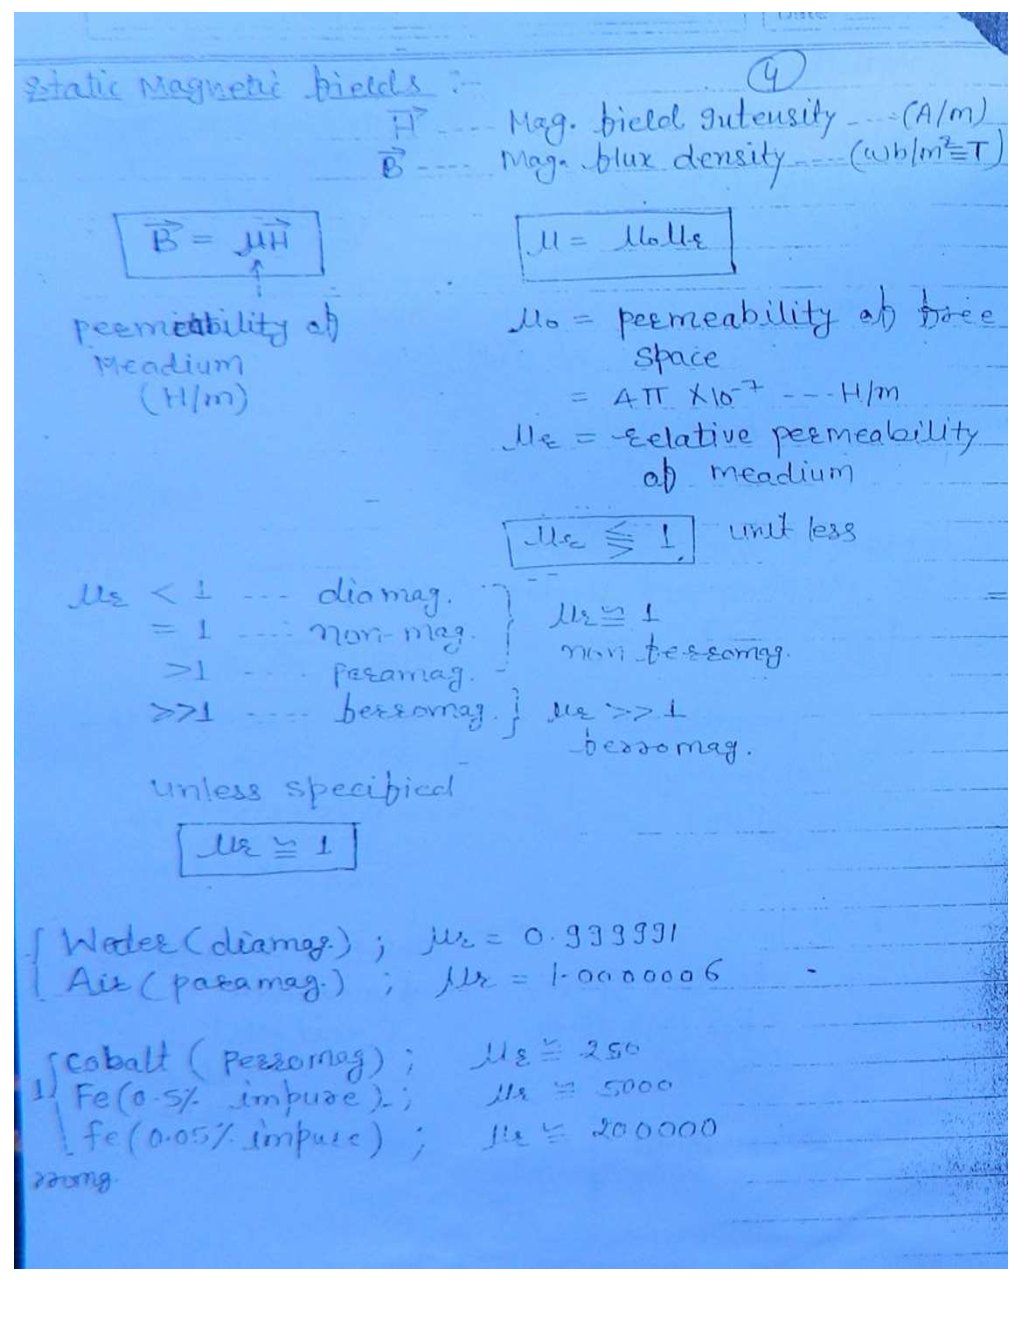 Static Magnetic fields :-
4
H⃗ ---- Mag. field Intensity ---- (A/m)
B⃗ ---- Mag. flux density ---- (wb/m²≡T)
B⃗ = μH⃗
μ = μ₀μr
permeability of
Meadium
(H/m)
μ₀ = permeability of free
space
= 4π × 10⁻⁷ --- H/m
μr = relative permeability
of meadium
μr ⪋ 1 unit less
μr < 1 --- diamag.
= 1 ---- non-mag.
>1 ---- paramag.
μr ≅ 1
non ferromag.
>>1 ---- ferromag. } μr >> 1
ferromag.
unless specified
μr ≅ 1
Water (diamag.) ; μr = 0.999991
Air (paramag.) ; μr = 1.0000006
cobalt (ferromag) ; μr ≅ 250
1) Fe (0.5% impure) ; μr ≅ 5000
fe (0.05% impure) ; μr ≅ 200000
rromg.